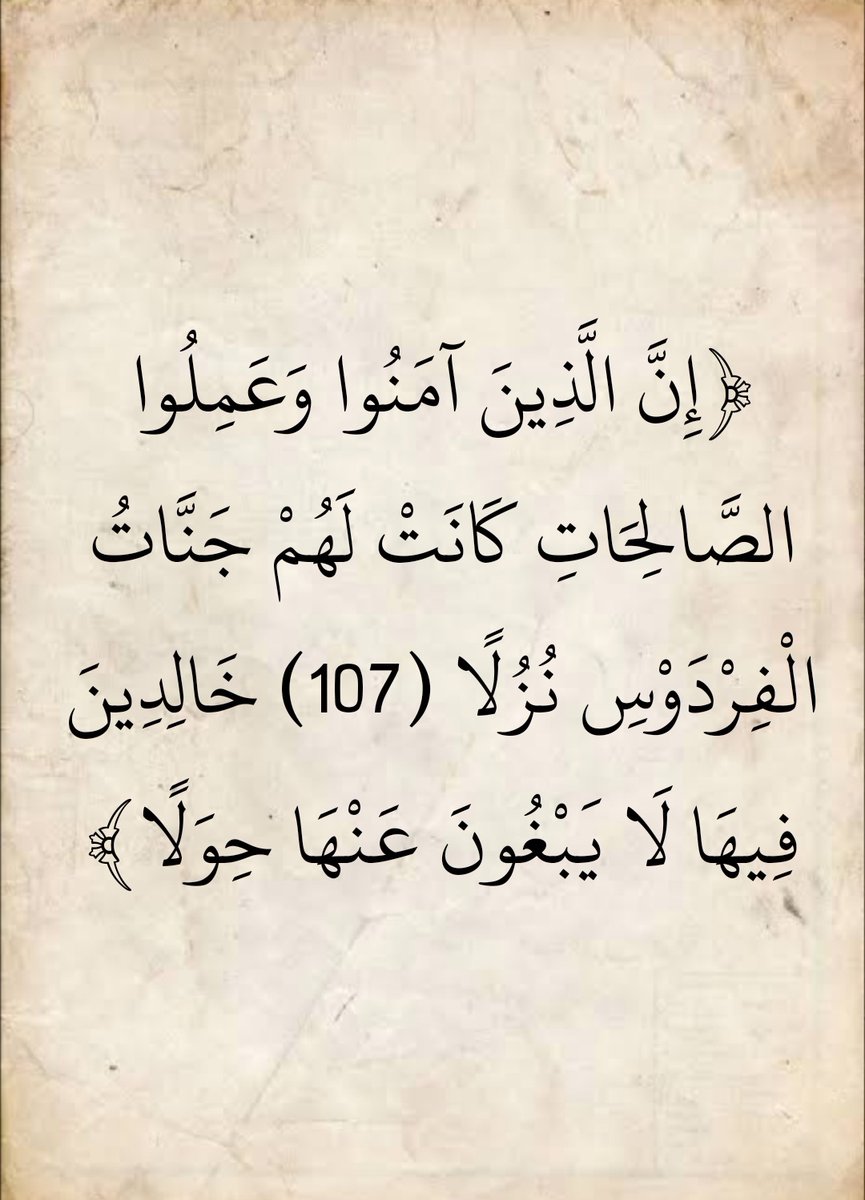 ﴿إِنَّ الَّذِينَ آمَنُوا وَعَمِلُوا
الصَّالِحَاتِ كَانَتْ لَهُمْ جَنَّاتُ
الْفِرْدَوْسِ نُزُلًا (107) خَالِدِينَ
فِيهَا لَا يَبْغُونَ عَنْهَا حِوَلًا﴾